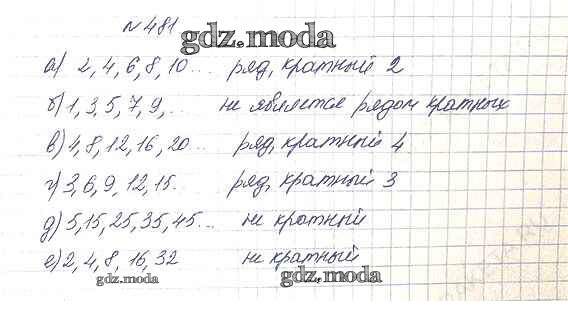 № 481
gdz.moda
а) 2, 4, 6, 8, 10... ряд, кратный 2
б) 1, 3, 5, 7, 9, .. не является рядом кратных
в) 4, 8, 12, 16, 20... ряд, кратный 4
г) 3, 6, 9, 12, 15.. ряд, кратный 3
д) 5, 15, 25, 35, 45... не кратный
е) 2, 4, 8, 16, 32 не кратный
gdz.moda
gdz.moda